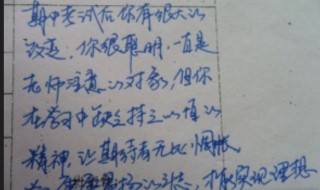 期中考试后你有很大的
改变,你很聪明,一直是
老师注意的对象,但你
在学习中缺乏持之以恒的
精神,让期待有无比惆怅
实现理想